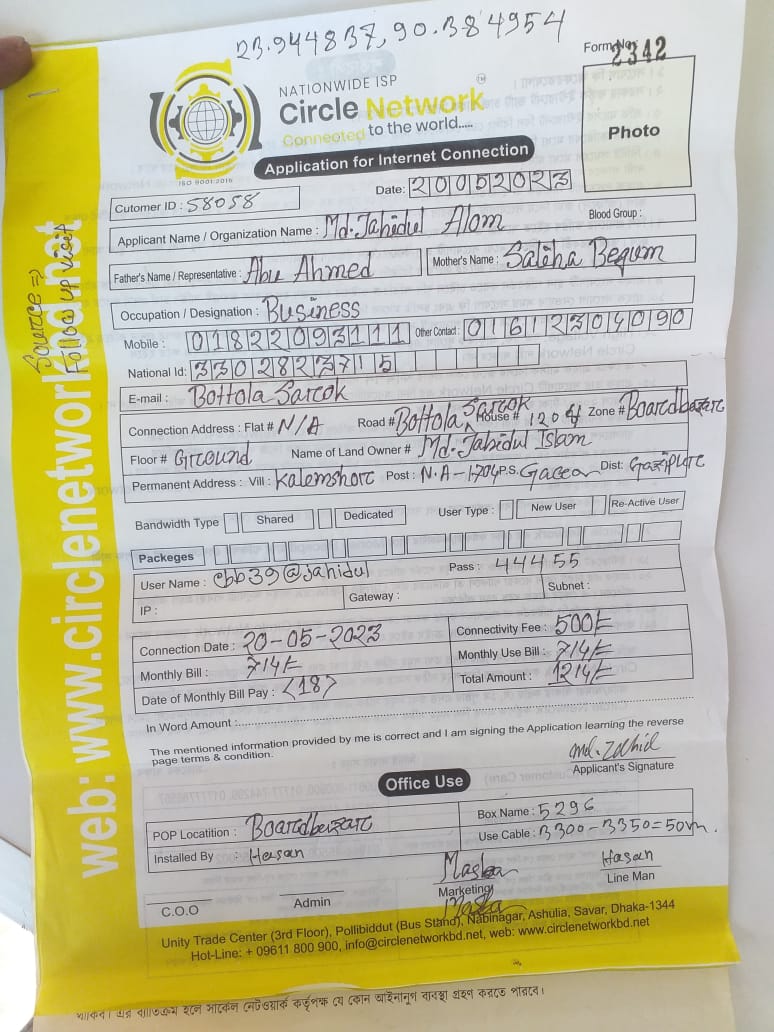 23.944837, 90.384954
Form No: 2342
NATIONWIDE ISP
Circle Network TM
Connected to the world.....
ISO 9001:2015
Photo
Application for Internet Connection
Date: 20052023
Cutomer ID : 58058
Applicant Name / Organization Name : Md. Jahidul Alom
Blood Group :
Father's Name / Representative : Abu Ahmed
Mother's Name : Saleha Begum
Occupation / Designation : Business
Mobile : 01822093111
Other Contact : 01612304090
National Id: 3302823715
E-mail : Bottola Sarok
Connection Address : Flat # N/A Road # Bottola Sarok House # 1204 Zone # Boardbazar
Floor # Ground Name of Land Owner # Md. Jahidul Islam
Permanent Address : Vill : Kalemshor Post : N.A-1704 P.S. Gacea Dist: Gazipur
Bandwidth Type Shared Dedicated User Type : New User Re-Active User
Packeges
User Name : cbb39@jahidul Pass : 44455
IP : Gateway : Subnet :
Connection Date : 20-05-2023 Connectivity Fee : 500/=
Monthly Bill : 714/= Monthly Use Bill : 714/=
Date of Monthly Bill Pay : <18> Total Amount : 1214/=
In Word Amount :
The mentioned information provided by me is correct and I am signing the Application learning the reverse
page terms & condition.
md. Zahid
Applicant's Signature
Office Use
POP Locatition : Boardbazar Box Name : 5296
Installed By : Hasan Use Cable : 3300-3350=50m.
C.O.O
Admin
Marketing
Hasan
Line Man
Unity Trade Center (3rd Floor), Pollibiddut (Bus Stand), Nabinagar, Ashulia, Savar, Dhaka-1344
Hot-Line: + 09611 800 900, info@circlenetworkbd.net, web: www.circlenetworkbd.net
web: www.circlenetworkbd.net
Source =>
Follow up visit
থাকিব। এর ব্যতিক্রম হলে সার্কেল নেটওয়ার্ক কর্তৃপক্ষ যে কোন আইনানুগ ব্যবস্থা গ্রহণ করতে পারবে।